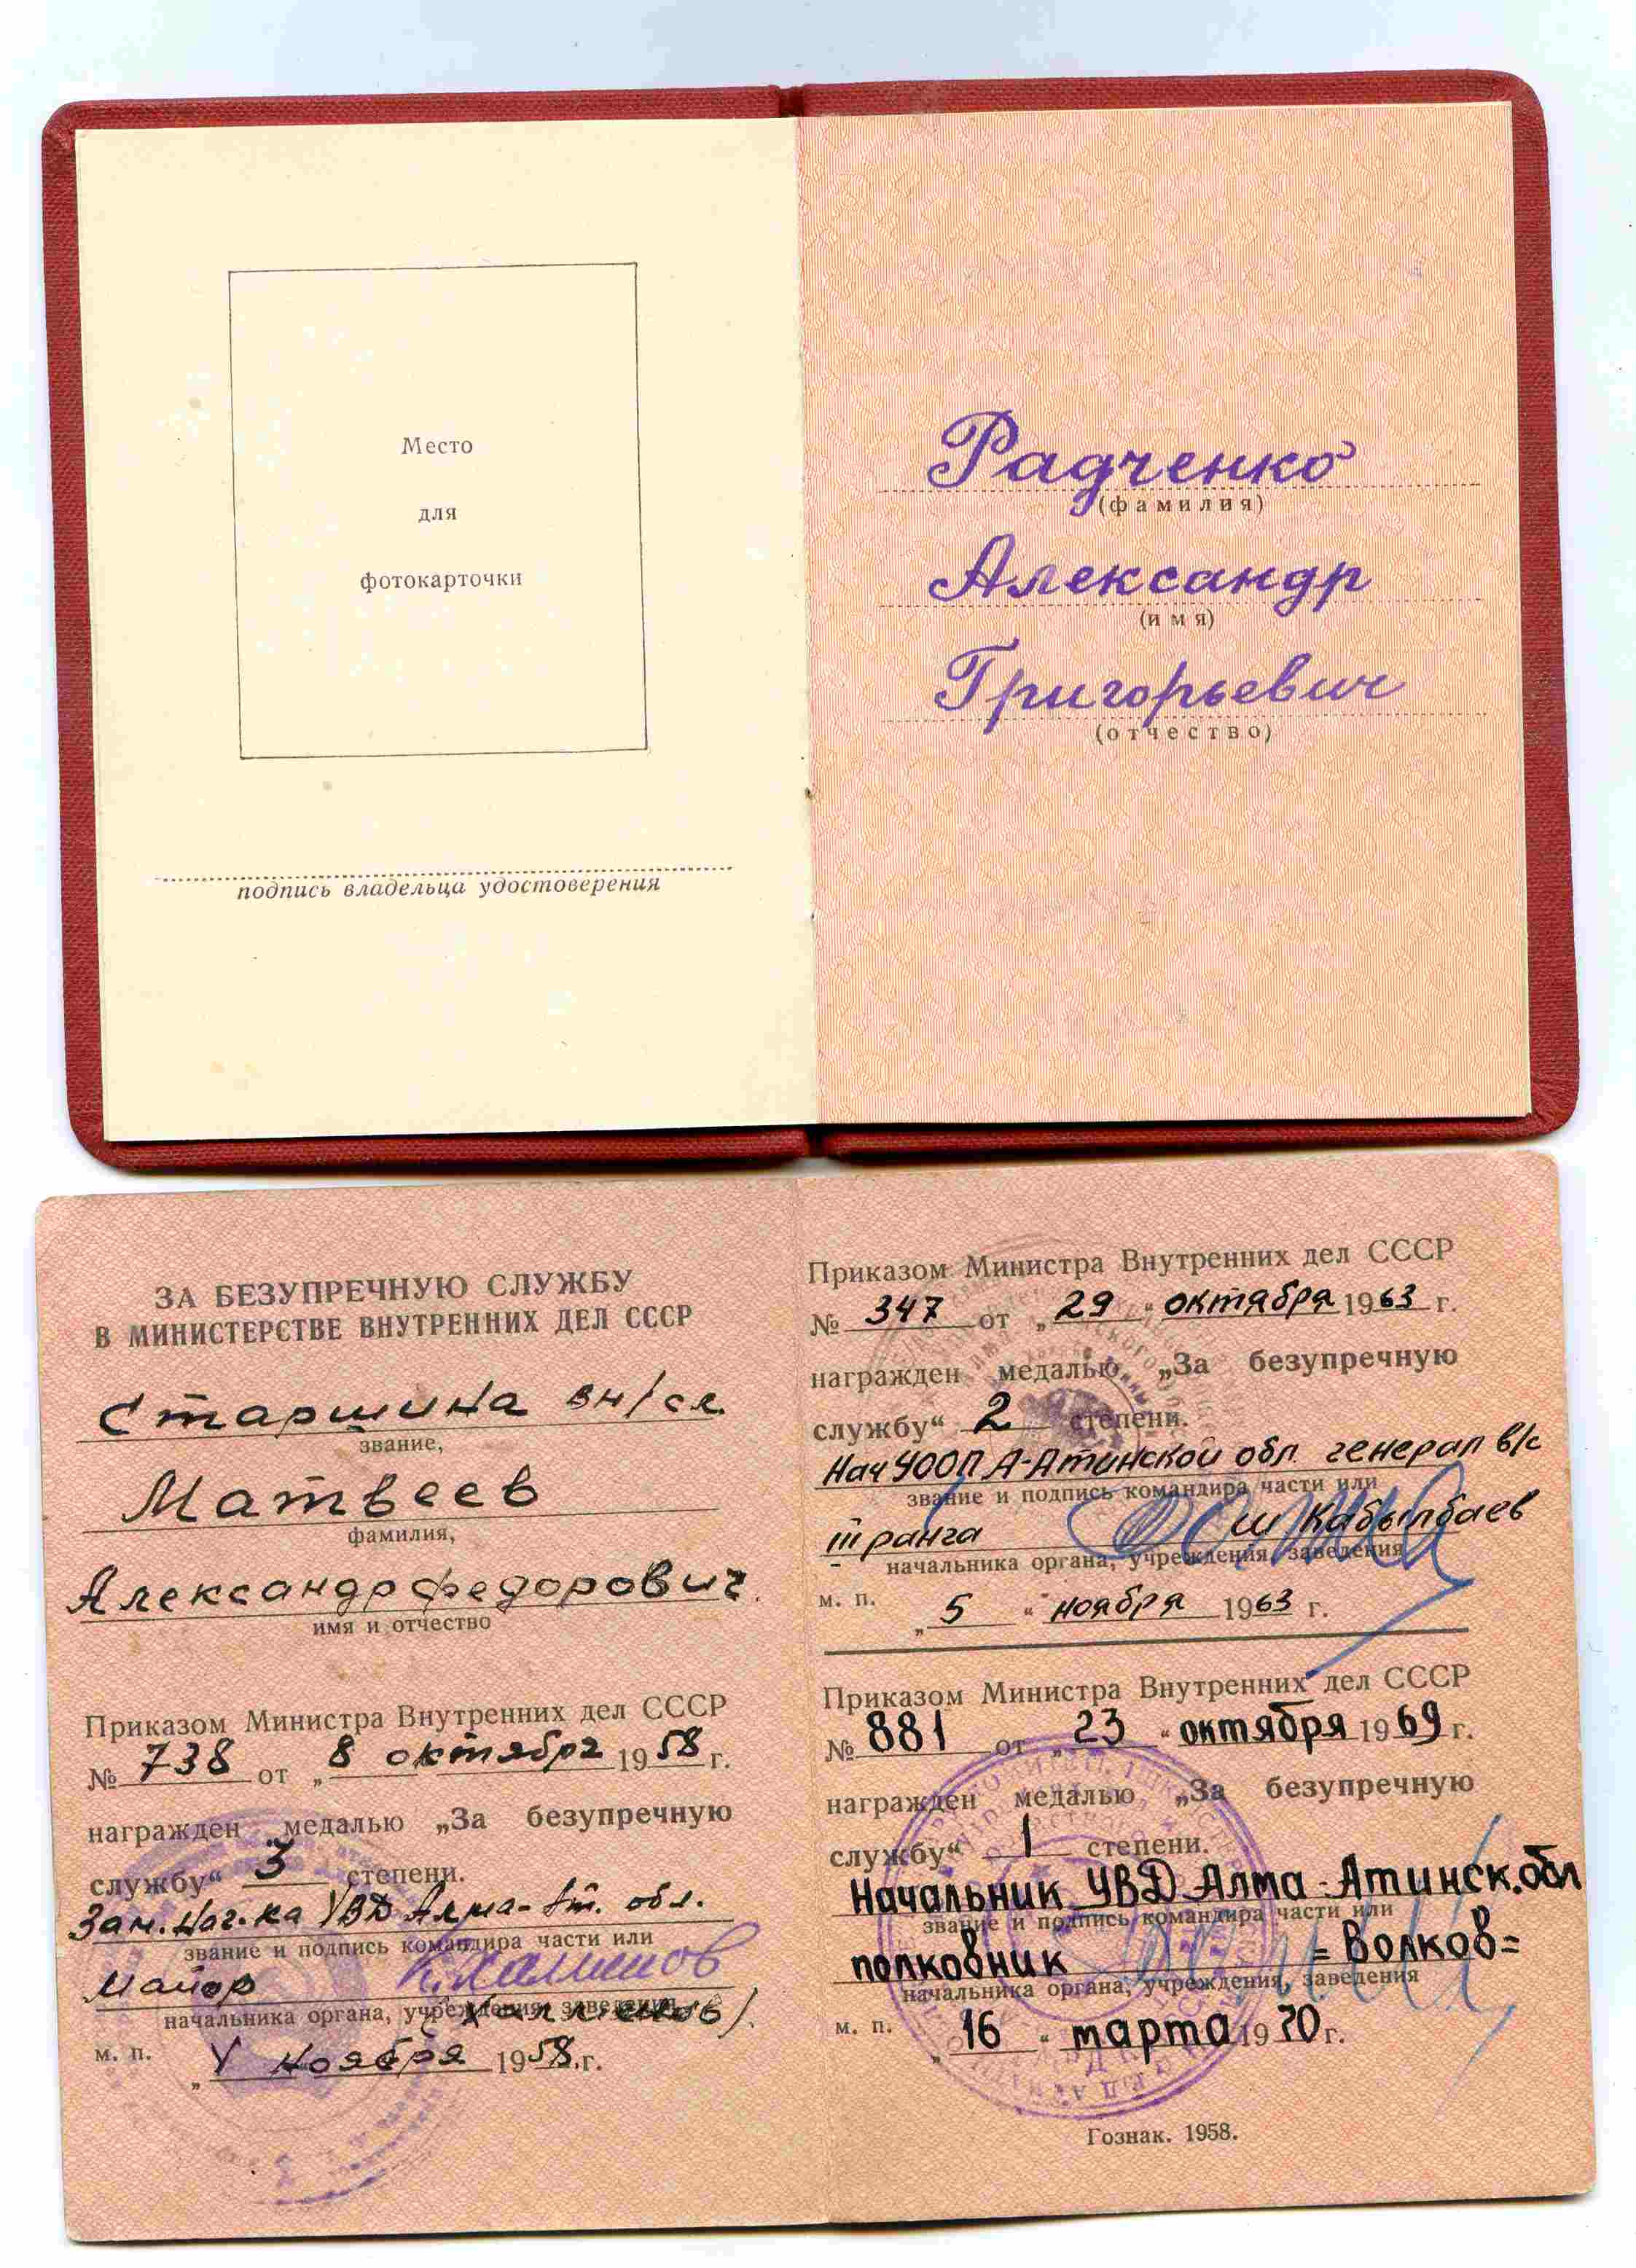 Место
для
фотокарточки
подпись владельца удостоверения
Радченко
(фамилия)
Александр
(имя)
Григорьевич
(отчество)
ЗА БЕЗУПРЕЧНУЮ СЛУЖБУ
В МИНИСТЕРСТВЕ ВНУТРЕННИХ ДЕЛ СССР
Старшина вн/сл.
звание,
Матвеев
фамилия,
Александр Федорович.
имя и отчество
Приказом Министра Внутренних дел СССР
№ 738 от „ 8 октября 1958 г.
награжден медалью „За безупречную
службу“ 3 степени.
Зам. Нач-ка УВД Алма-Ат. обл.
звание и подпись командира части или
майор
начальника органа, учреждения, заведения
м. п. „ V ноября 1958 г.
Приказом Министра Внутренних дел СССР
№ 347 от „ 29 “ октября 1963 г.
награжден медалью „За безупречную
службу“ 2 степени.
Нач УООП А-Атинской обл. генерал в/с
звание и подпись командира части или
III ранга Ш Кабылбаев
начальника органа, учреждения, заведения
м. п. „ 5 “ ноября 1963 г.
Приказом Министра Внутренних дел СССР
№ 881 от „ 23 “ октября 1969 г.
награжден медалью „За безупречную
службу“ 1 степени.
Начальник УВД Алма-Атинск. обл
звание и подпись командира части или
полковник = Волков =
начальника органа, учреждения, заведения
м. п. „ 16 “ марта 1970 г.
Гознак. 1958.